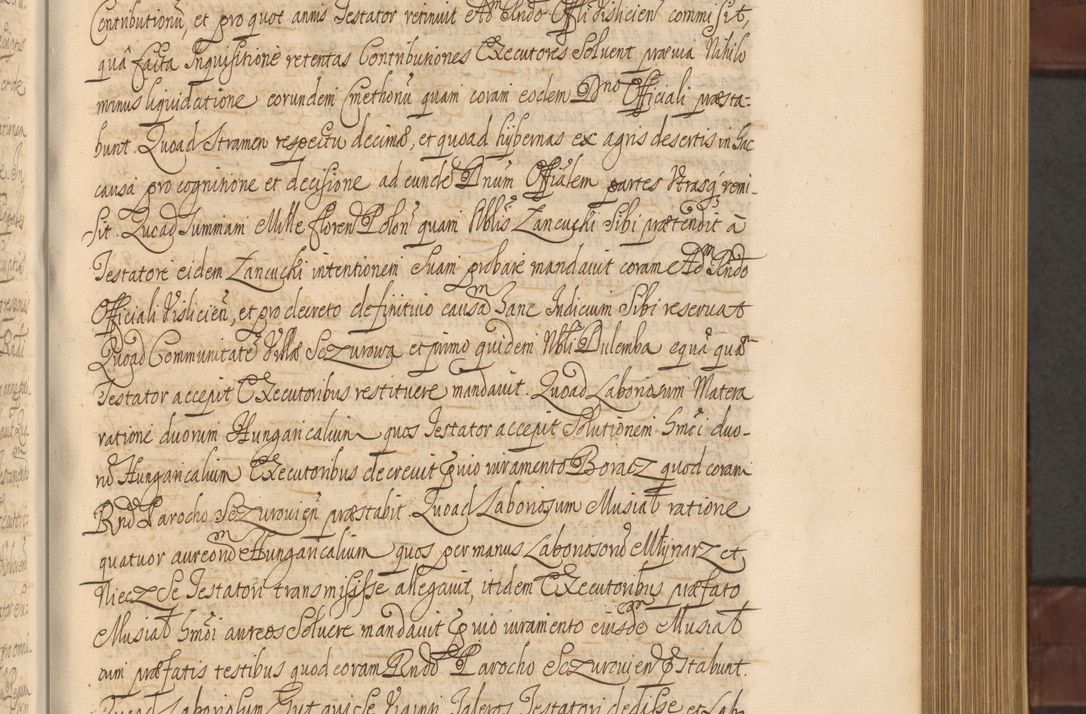 Contributionū, et pro quot annis Testator retinuit Adm Rndo Offli Visliciēn commisit,
quâ facta Inquisitione retentas Contributiones Executores Solvent prævia Nihilo
minus liqvidatione eorundem Cmethonū quam coram eodem Dno Officiali præsta-
bunt. Quoad Stramen respectu decimæ, et quoad hÿbernas ex agris desertis in hac
causa pro cognitione et decisione ad eunde Dnum Offialem partes Utrasq remi-
sit. Quoad Summam Mille floren Polon quam Nblis Zancucki Sibi prætendit à
Testatore eidem Zancucki intentionem Suam probare mandavit coram Adm Rndo
Officiali Visliciēn, et pro decreto definitivo causam hanc Iudicium Sibi reservat
Quoad Communitatē Villæ Sczurowa et primo quidem Nbli Dulemba equā quam
Testator accepit Executoribus restituere mandavit. Quoad Laboriosum Matera
ratione duorum Hungaricalium quos Testator accepit Solutionem hmōi duo-
rū Hungaricalium Executoribus decrevit pvio iuramento Boracz quod coram
Rndo Parocho Sczuroviēn præstabit. Quoad Laboriosum Musiał ratione
quatuor aureorū Hungaricalium quos per manus Laboriosorū Młÿnarz et
Niecze Testatori transmisisse allegavit, itidem Executoribus præfato
Musiał hmōi aureos Solvere mandavit pvio iuramento eiusdem Musiał
cum præfatis testibus quod coram Rndo Parocho Sczuroviēn pstabunt.
Quoad Laboriosum Gut qui se Triginti Talers Testatori dedisse et Lab